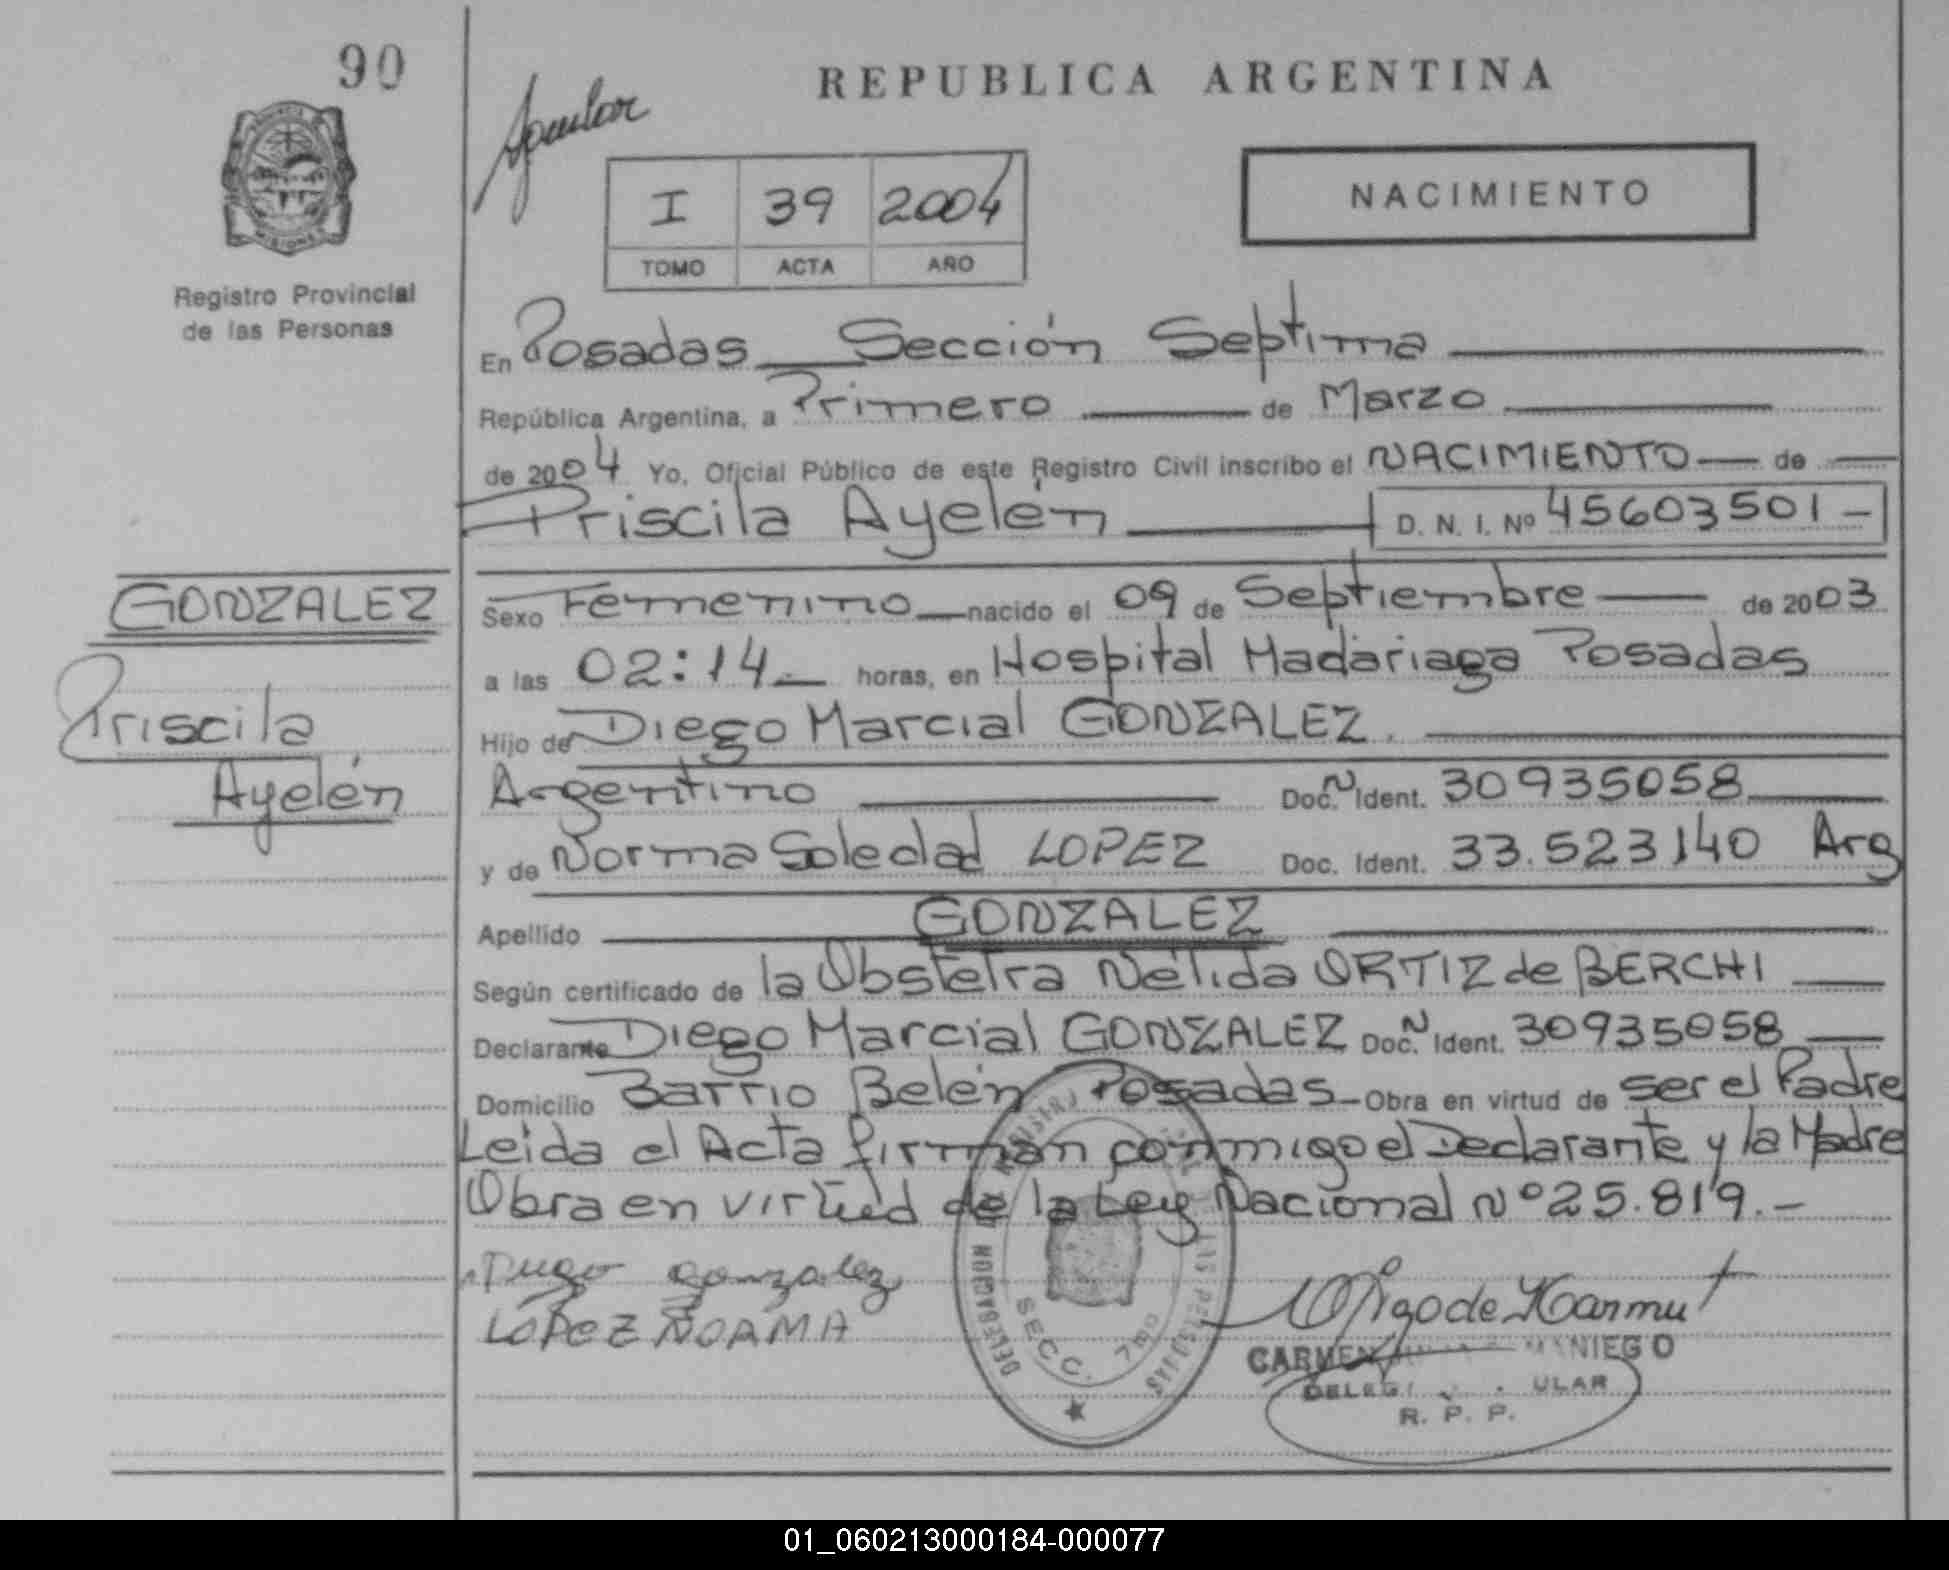 90
REPUBLICA ARGENTINA
Aguilar
I 39 2004
TOMO ACTA AÑO
NACIMIENTO
PROVINCIA
MISIONES
Registro Provincial
de las Personas
En Posadas Sección Septima
República Argentina, a Primero de Marzo
de 2004 Yo, Oficial Público de este Registro Civil inscribo el NACIMIENTO de
Priscila Ayelén D. N. I. Nº 45603501-
GONZALEZ
Priscila
Ayelén
Sexo Femenino nacido el 09 de Septiembre de 2003
a las 02:14 horas, en Hospital Madariaga Posadas
Hijo de Diego Marcial GONZALEZ.
Argentino Doc. N Ident. 30935058
y de Norma Soledad LOPEZ Doc. Ident. 33.523140 Arg
Apellido GONZALEZ
Según certificado de la Obstetra Nélida ORTIZ de BERCHI
Declarante Diego Marcial GONZALEZ Doc. N Ident. 30935058
Domicilio Barrio Belén Posadas Obra en virtud de ser el Padre
Leida el Acta firman conmigo el Declarante y la Madre
Obra en virtud de la Ley Nacional Nº 25.819.-
gonzalez
LOPEZ NORMA
DELEGACION
SECC. 7ma
CARMEN
R. P. P.
01_060213000184-000077